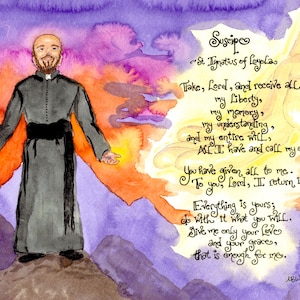 Suscipe
~St Ignatius of Loyola
Take, Lord, and receive all
my liberty,
my memory,
my understanding,
and my entire will,
All I have and call my
You have given all to me.
To you, Lord, I return it
Everything is yours;
do with it what you will.
Give me only your Love
and your grace,
that is enough for me.